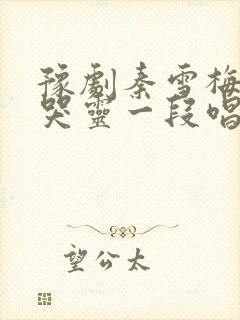 豫劇秦雪梅
哭靈一段唱
望公太